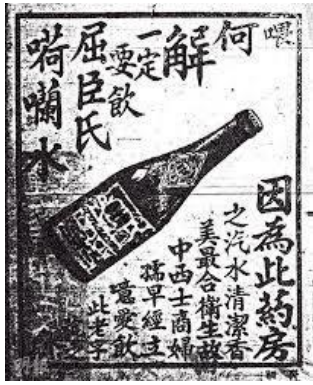 喂
何
解
一定
要飲
屈臣氏
嗬囒水
因為此葯房
之汽水清潔香
美最合衛生故
中西士商婦
孺早經立
愛飲
此老子